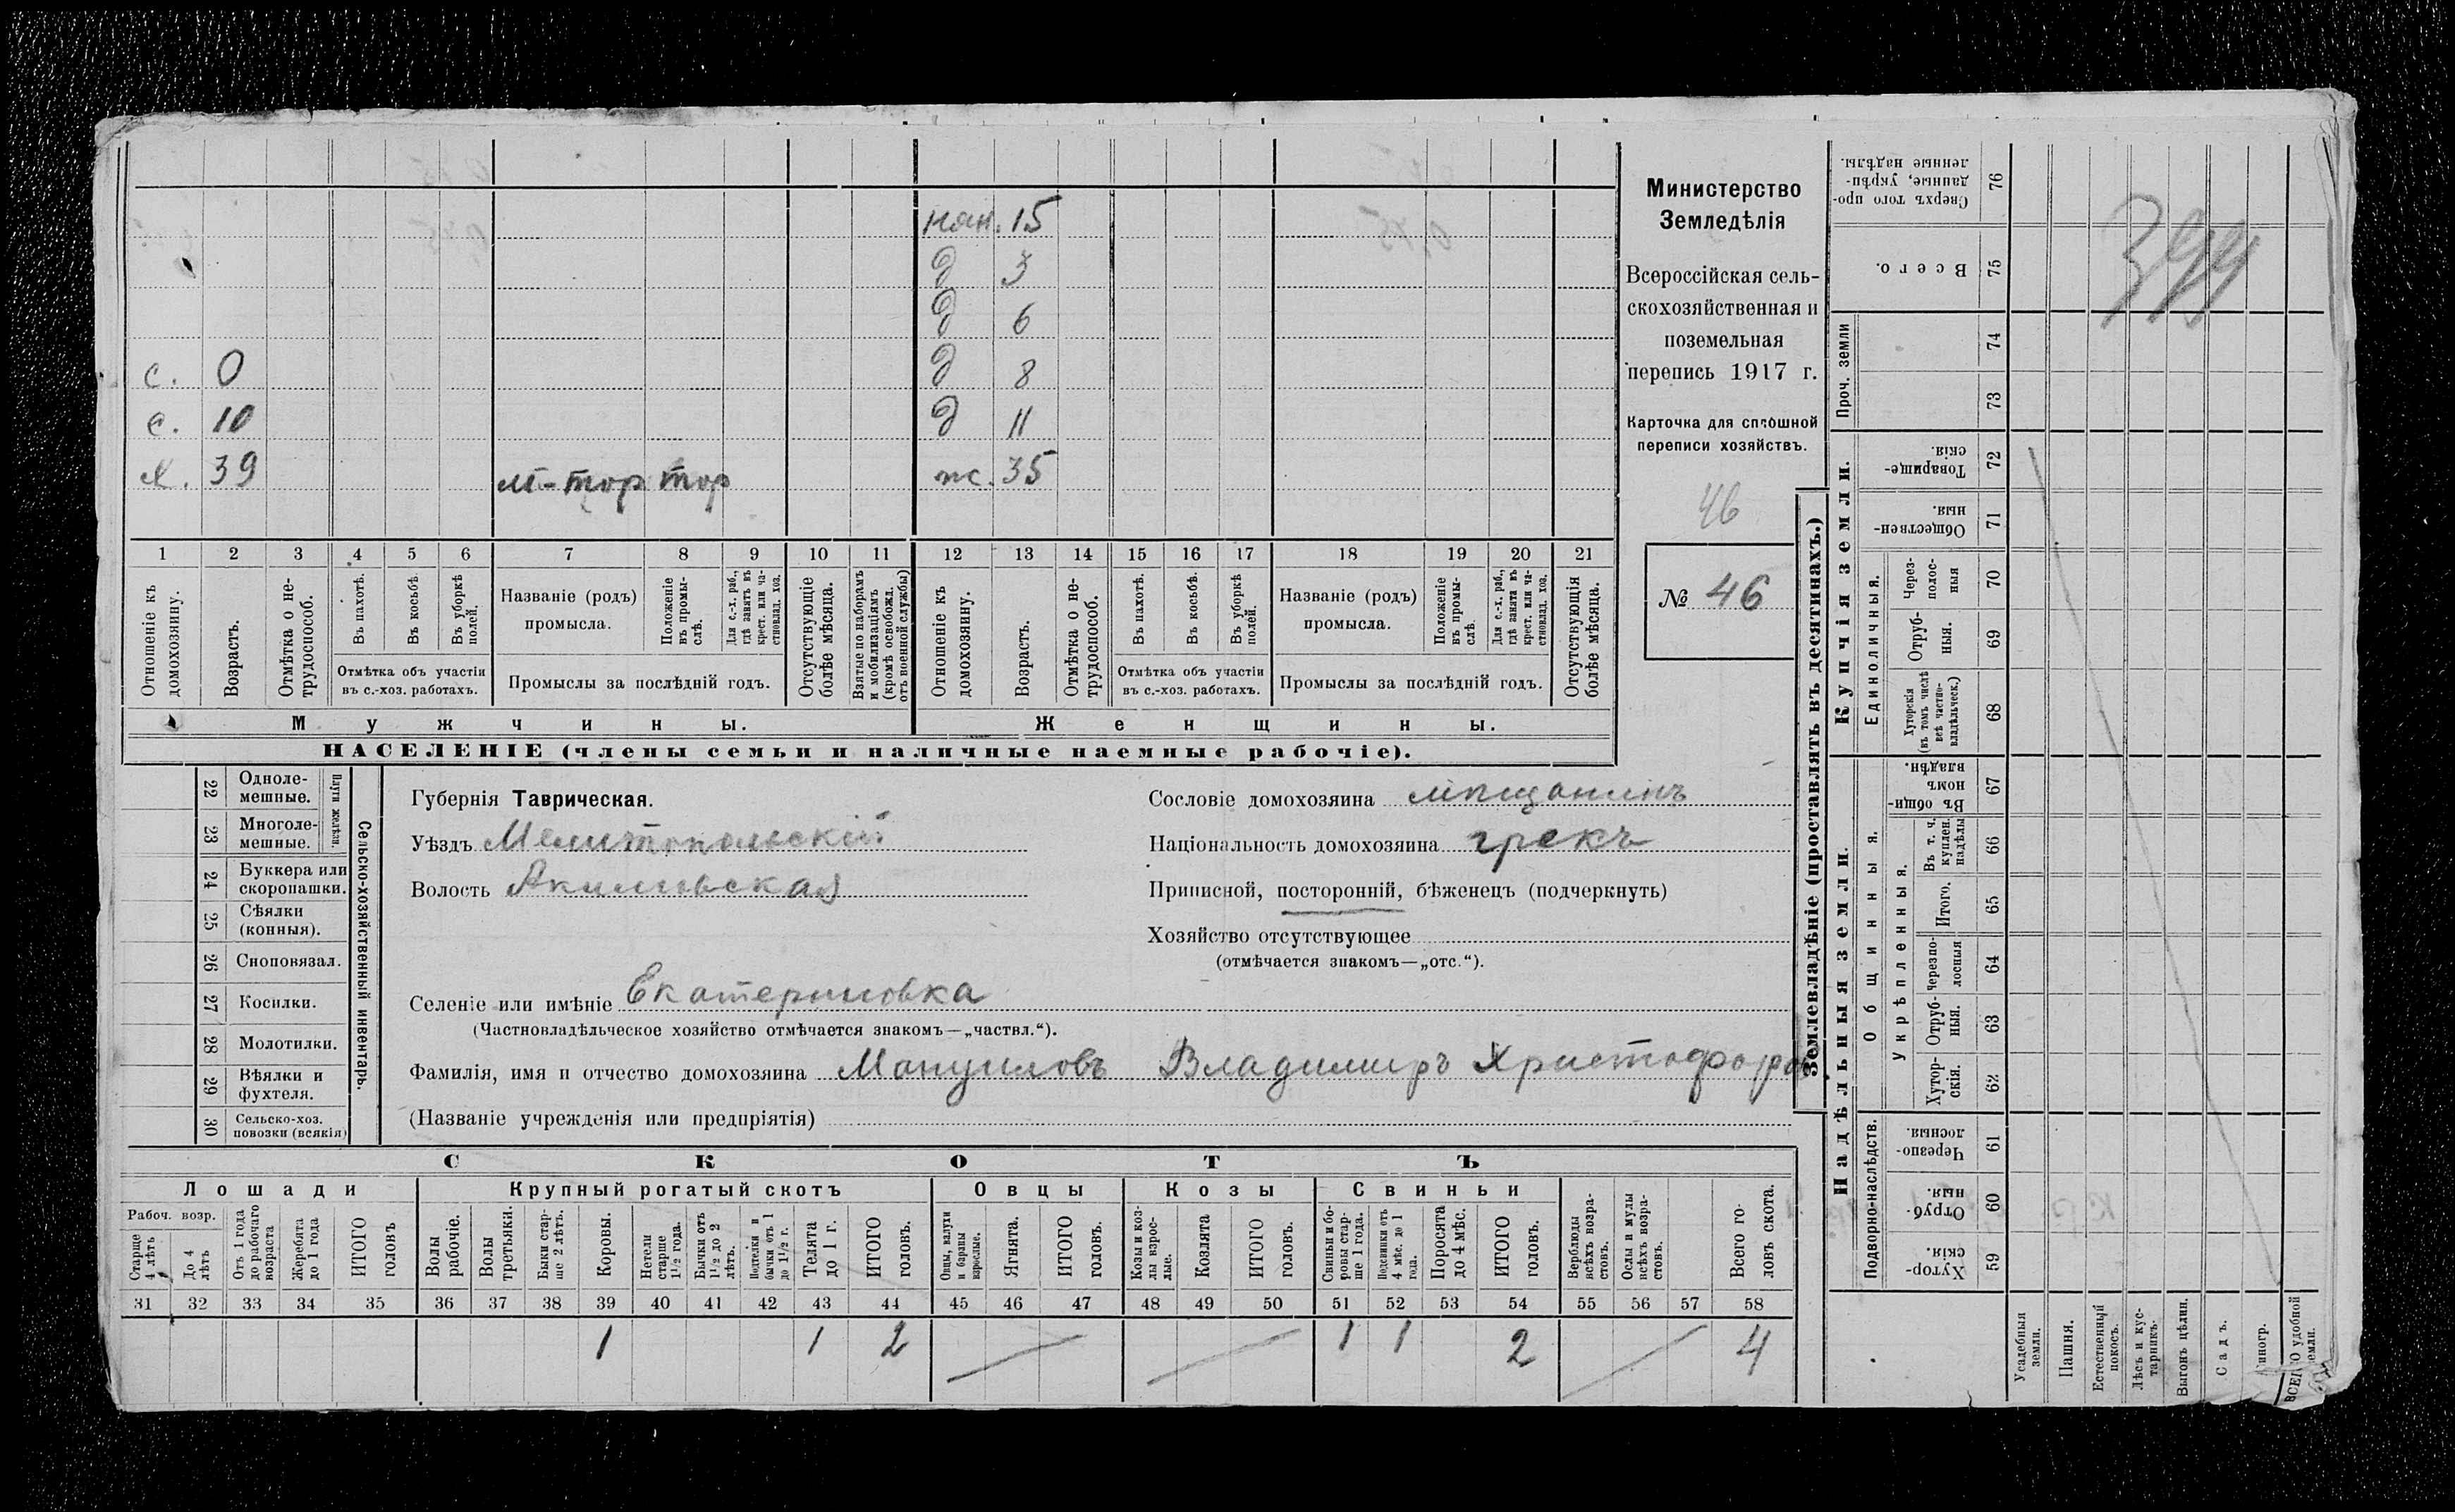 Министерство
Земледѣлія
Всероссійская сель-
скохозяйственная и
поземельная
перепись 1917 г.
Карточка для сплошной
переписи хозяйствъ.
46
№ 46
нан. 15
д 3
д 6
с. 0 д 8
с. 10 д 11
х. 39 м-тор тор ж. 35
1 2 3 4 5 6 7 8 9 10 11 12 13 14 15 16 17 18 19 20 21
Отношеніе къ домохозяину.
Возрастъ.
Отмѣтка о не-трудоспособ.
Въ пахотѣ.
Въ косьбѣ.
Въ уборкѣ полей.
Отмѣтка объ участіи
въ с.-хоз. работахъ.
Названіе (родъ)
промысла.
Положеніе въ промы-слѣ.
Для с.-х. раб., гдѣ занятъ въ крест. или ча-стновлад. хоз.
Промыслы за послѣдній годъ.
Отсутствующіе болѣе мѣсяца.
Взятые по наборамъ и мобилизаціямъ (кромѣ освобожд. отъ военной службы)
Отношеніе къ домохозяину.
Возрастъ.
Отмѣтка о не-трудоспособ.
Въ пахотѣ.
Въ косьбѣ.
Въ уборкѣ полей.
Отмѣтка объ участіи
въ с.-хоз. работахъ.
Названіе (родъ)
промысла.
Положеніе въ промы-слѣ.
Для с.-х. раб., гдѣ занята въ крест. или ча-стновлад. хоз.
Промыслы за послѣдній годъ.
Отсутствующія болѣе мѣсяца.
Мужчины. Женщины.
НАСЕЛЕНІЕ (члены семьи и наличные наемные рабочіе).
22 Одноле-мешные.
23 Многоле-мешные.
Плуги желѣзн.
24 Буккера или скоропашки.
25 Сѣялки (конныя).
26 Сноповязал.
27 Косилки.
28 Молотилки.
29 Вѣялки и фухтеля.
30 Сельско-хоз. повозки (всякія)
Сельско-хозяйственный инвентарь.
Губернія Таврическая.
Уѣздъ Мелитопольскій
Волость Акимовская
Сословіе домохозяина мѣщанинъ
Національность домохозяина грекъ
Приписной, посторонній, бѣженецъ (подчеркнуть)
Хозяйство отсутствующее
(отмѣчается знакомъ—„отс.“).
Селеніе или имѣніе Екатериновка
(Частновладѣльческое хозяйство отмѣчается знакомъ—„частвл.“).
Фамилія, имя и отчество домохозяина Мануиловъ Владимиръ Христофоров
(Названіе учрежденія или предпріятія)
СКОТЪ
Лошади Крупный рогатый скотъ Овцы Козы Свиньи
Рабоч. возр.
Старше 4 лѣтъ
До 4 лѣтъ
Отъ 1 года до рабочаго возраста
Жеребята до 1 года
ИТОГО головъ
Волы рабочіе.
Волы третьяки.
Быки стар-ше 2 лѣтъ.
Коровы.
Нетели старше 1½ года.
Бычки отъ 1½ до 2 лѣтъ.
Подтелки и бычки отъ 1 до 1½ г.
Телята до 1 г.
ИТОГО головъ.
Овцы, валухи и бараны взрослые.
Ягнята.
ИТОГО головъ.
Козы и коз-лы взрос-лые.
Козлята
ИТОГО головъ.
Свиньи и бо-ровы стар-ше 1 года.
Подсвинки отъ 4 мѣс. до 1 года.
Поросята до 4 мѣс.
ИТОГО головъ.
Верблюды всѣхъ возра-стовъ.
Ослы и мулы всѣхъ возра-стовъ.
Всего го-ловъ скота.
31 32 33 34 35 36 37 38 39 40 41 42 43 44 45 46 47 48 49 50 51 52 53 54 55 56 57 58
1 1 2 1 1 2 4
Землевладѣніе (проставлять въ десятинахъ.)
Купчія земли.
Надѣльныя земли.
Сверхъ того про-данные, укрѣп-ленные надѣлы. 76
Всего. 75
Проч. земли
74
73
Товарище-скія. 72
Обществен-ныя. 71
Единоличныя.
Через-полос-ныя 70
Отруб-ныя. 69
Хуторскія (въ томъ числѣ всѣ частно-владѣльческ.) 68
Общинныя.
Въ общин-номъ владѣн. 67
Укрѣпленныя.
Въ т. ч. куплен. надѣлы 66
Итого. 65
Черезпо-лосныя 64
Отруб-ныя. 63
Хутор-скія. 62
Подворно-наслѣдств.
Черезпо-лосныя. 61
Отруб-ныя. 60
Хутор-скія. 59
Усадебныя земли.
Пашня.
Естественный покосъ.
Лѣсъ и кус-тарникъ.
Выгонъ цѣлин.
Садъ.